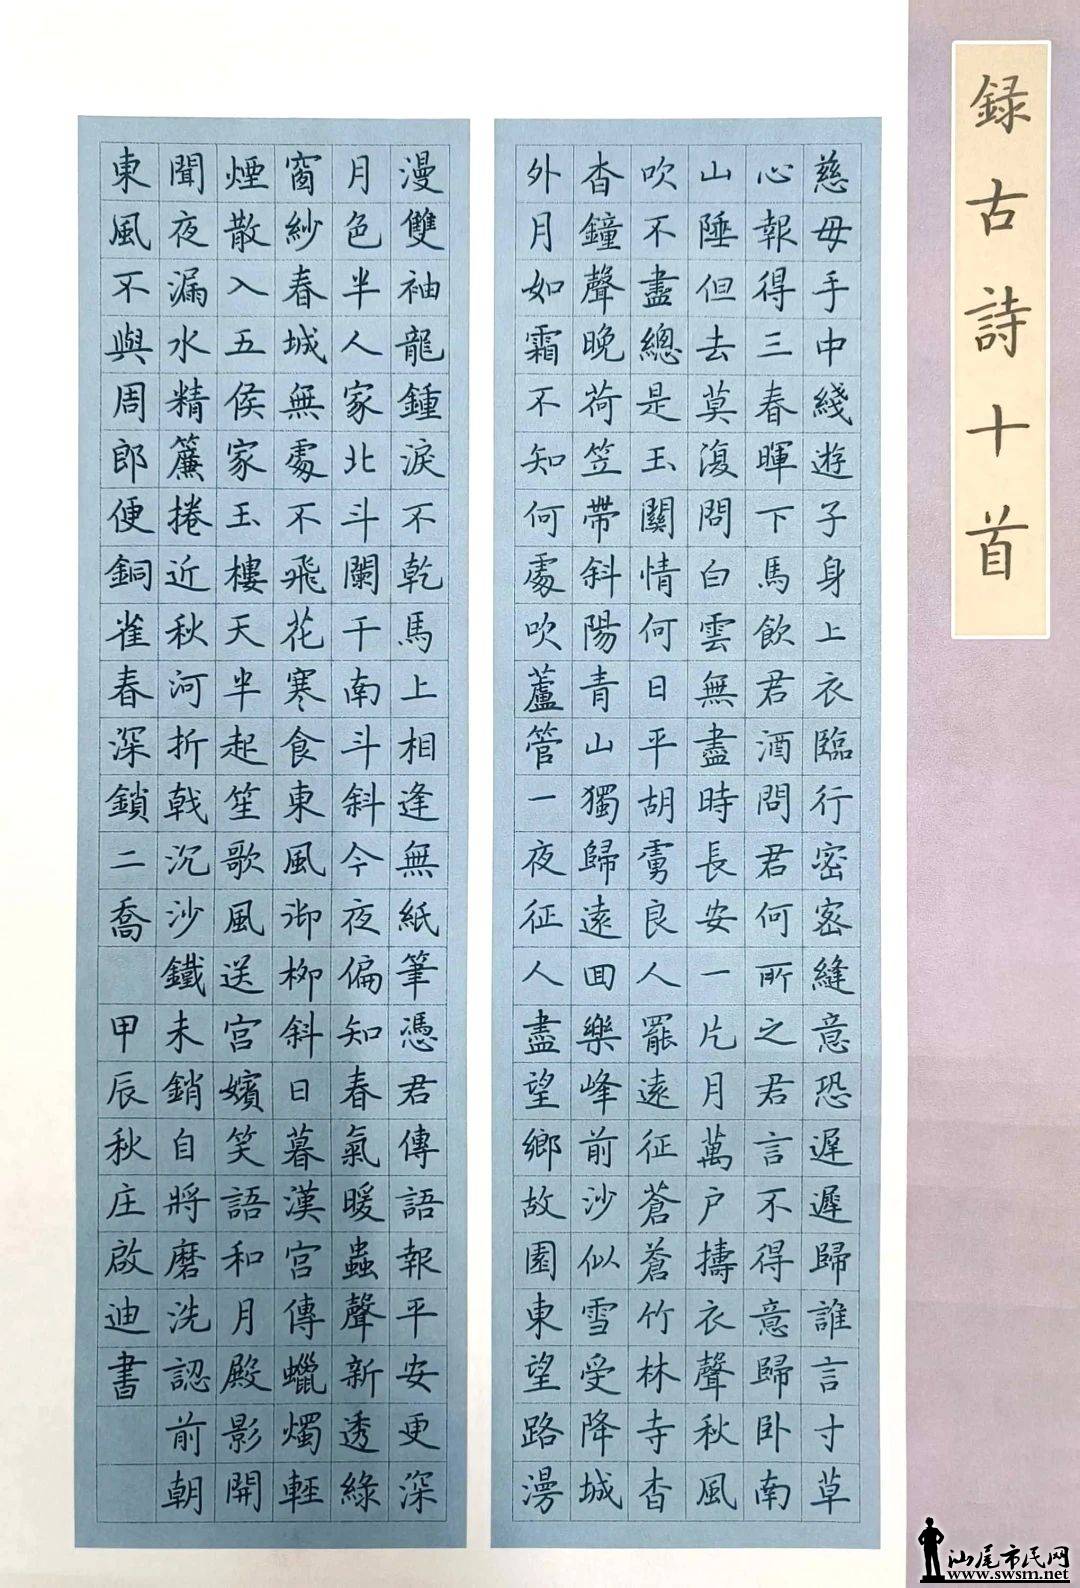 録古詩十首
慈母手中綫遊子身上衣臨行密密縫意恐遲遲歸誰言寸草
心報得三春暉下馬飲君酒問君何所之君言不得意歸卧南
山陲但去莫復問白雲無盡時長安一片月萬户擣衣聲秋風
吹不盡總是玉關情何日平胡虜良人罷遠征蒼蒼竹林寺杳
杳鐘聲晚荷笠帶斜陽青山獨歸遠囬樂峰前沙似雪受降城
外月如霜不知何處吹蘆管一夜征人盡望鄉故園東望路漫
漫雙袖龍鍾淚不乾馬上相逢無紙筆憑君傳語報平安更深
月色半人家北斗闌干南斗斜今夜偏知春氣暖蟲聲新透綠
窗紗春城無處不飛花寒食東風御柳斜日暮漢宮傳蠟燭輕
煙散入五侯家玉樓天半起笙歌風送宮嬪笑語和月殿影開
聞夜漏水精簾捲近秋河折戟沉沙鐵未銷自將磨洗認前朝
東風不與周郎便銅雀春深鎖二喬 甲辰秋庄啟迪書
汕尾市民网
www.swsm.net